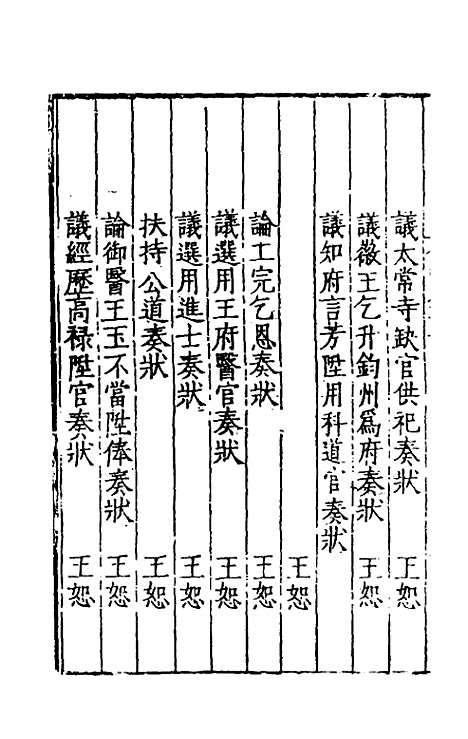 議太常寺缺官供祀奏狀　王恕
議徽王乞升鈞州爲府奏狀　王恕
議知府言芳陞用科道官奏狀
王恕
論工完乞恩奏狀　王恕
議選用王府醫官奏狀　王恕
議選用進士奏狀　王恕
扶持公道奏狀　王恕
論御醫王玉不當陞俸奏狀　王恕
議經歷高祿陞官奏狀　王恕